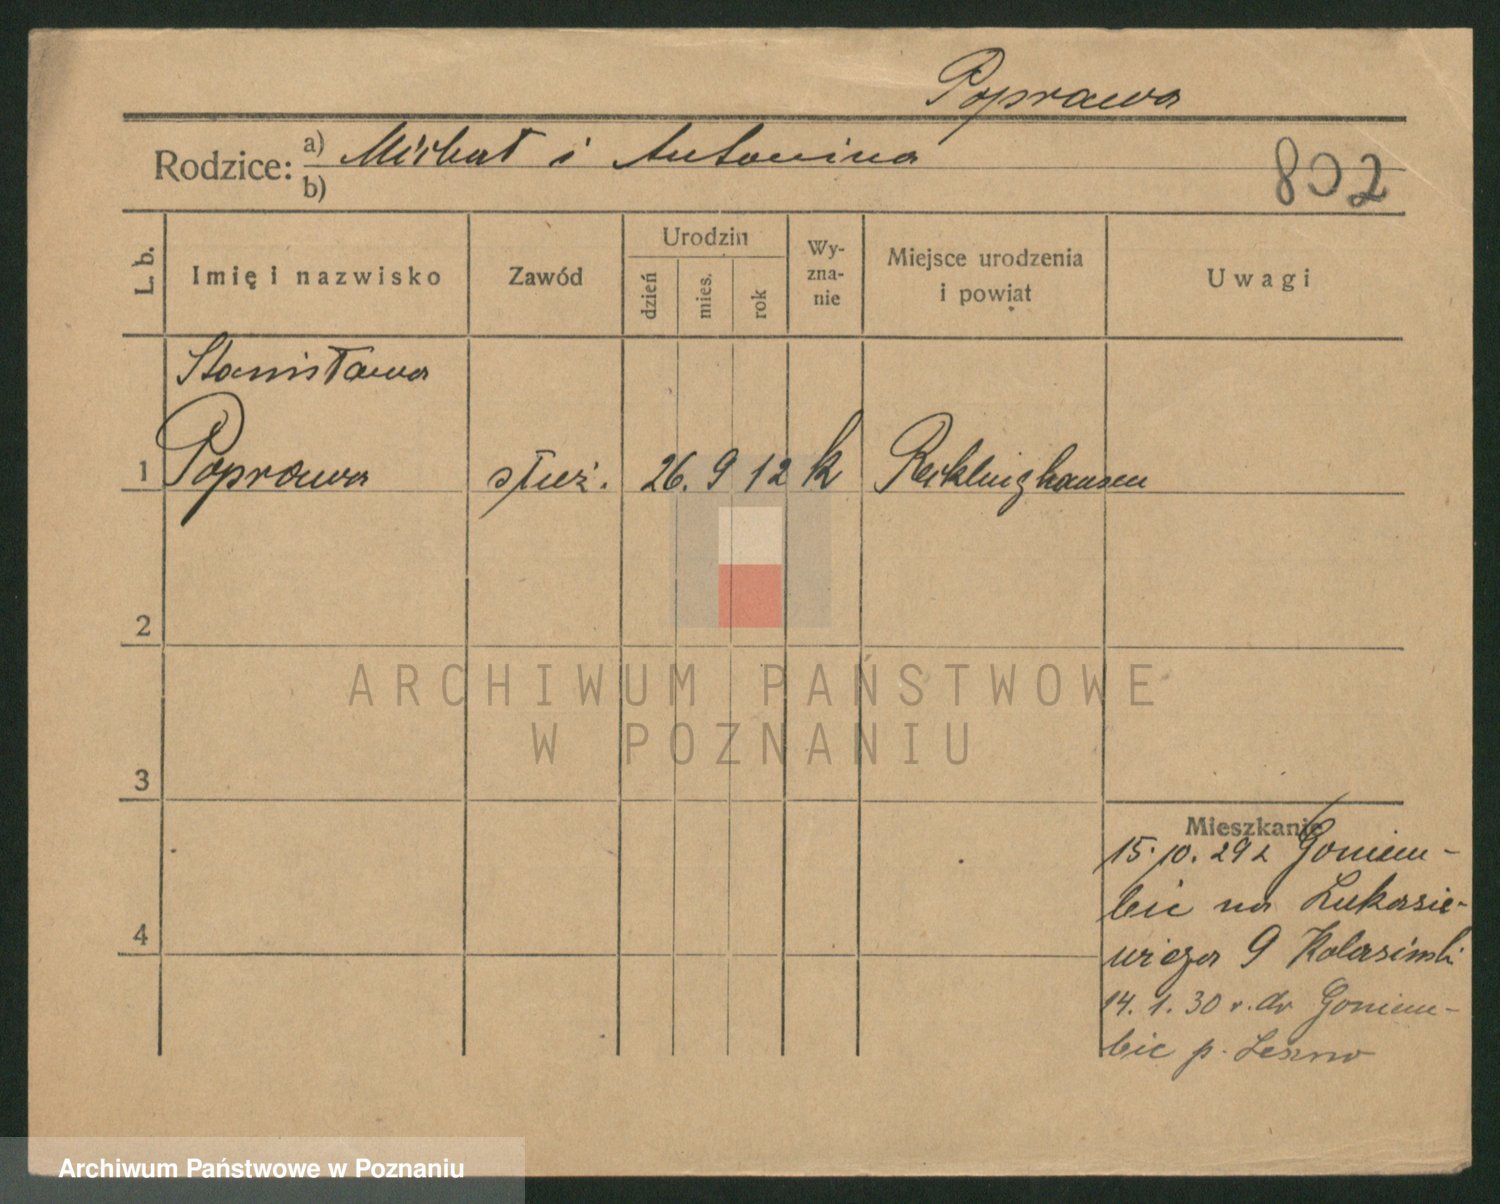 Poprawa
Rodzice: a) Michał i Antonina
b)
802
L. b.
Imię i nazwisko
Zawód
Urodzin
dzień
mies.
rok
Wy-
zna-
nie
Miejsce urodzenia
i powiat
Uwagi
Stanisława
1 Poprawa służ. 26. 9 12 k Recklinghausen
2
3
Mieszkanie
15.10.29 z Goniem-
bic na Łukasie-
4
wicza 9 Kolasiński
14.1.30 r. do Goniem-
bic p. Leszno
ARCHIWUM PAŃSTWOWE
W POZNANIU
Archiwum Państwowe w Poznaniu